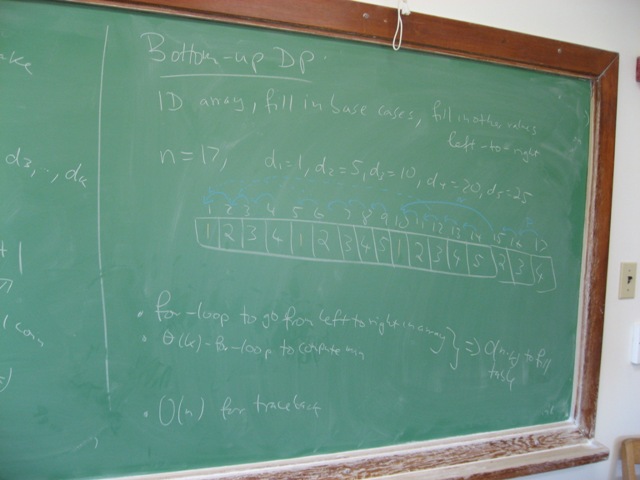 Bottom-up DP
1D array, fill in base cases, fill in other values
left-to-right
d3, .., dk
n=17, d1=1, d2=5, d3=10, d4=20, d5=25
1 2 3 4 5 6 7 8 9 10 11 12 13 14 15 16 17
1 2 3 4 1 2 3 4 5 1 2 3 4 5 2 3 4
• for-loop to go from left to right in array
• Θ(k)-for-loop to compute min
} => O(n·k) to fill
table
• O(n) for traceback